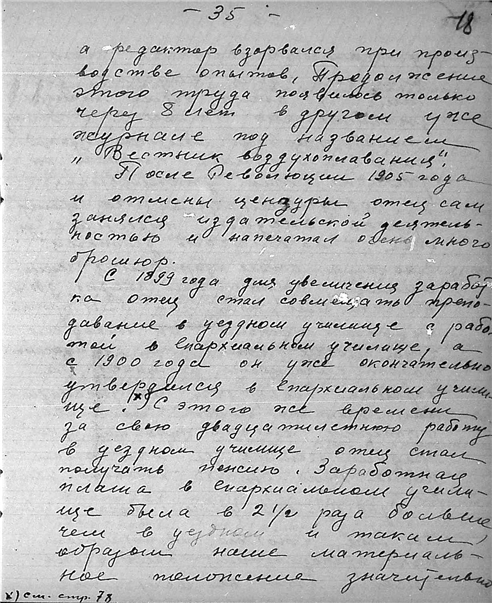 - 35 -
18
а редактор взорвался при произ-
водстве опытов. Продолжение
этого труда появилось только
через 8 лет в другом уже
журнале под названием
„Вестник воздухоплавания".
После Революции 1905 года
и отмены цензуры отец сам
занялся издательской деятель-
ностью и напечатал очень много
брошюр.
С 1899 года для увеличения заработ
ка отец стал совмещать препо-
давание в уездном училище с рабо
той в Епархиальном училище, а
с 1900 года он уже окончательно
утвердился в Епархиальном учили-
ще. х) С этого же времени
за свою двадцатилетнюю работу
в уездном училище отец стал
получать пенсию. Заработная
плата в Епархиальном учили-
ще была в 2 1/2 раза больше
чем в уездном и таким
образом наше материаль-
ное положение значительно
х) см. стр. 78